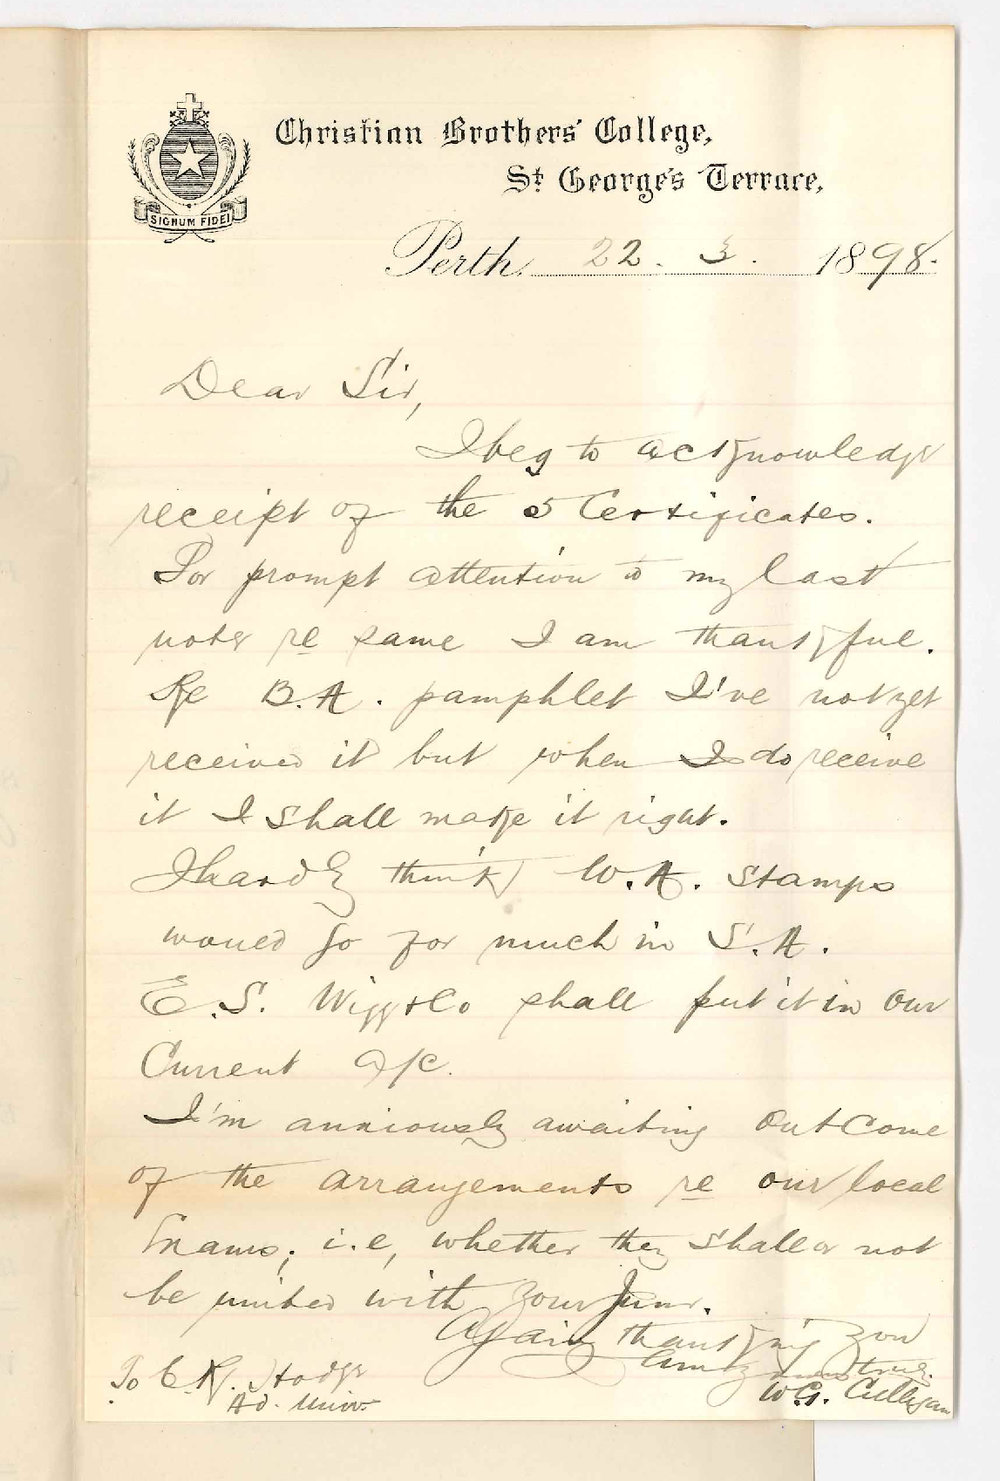 SIGNUM FIDEI
Christian Brothers' College,
St. George's Terrace,
Perth, 22. 3. 1898.
Dear Sir,
I beg to acknowledge
receipt of the 5 Certificates.
For prompt attention to my last
note re same I am thankful.
Re B.A. pamphlet I've not yet
received it but when I do receive
it I shall make it right.
I hardly think W.A. stamps
would go for much in S.A.
E.S. Wigg & Co shall put it in our
Current a/c.
I'm anxiously awaiting outcome
of the arrangements re our local
Exams; i.e, whether they shall or not
be united with your Junr.
Again thanking you
I am yours truly
W.G. Culligan
To C.R. Hodge
Ad. Univ.